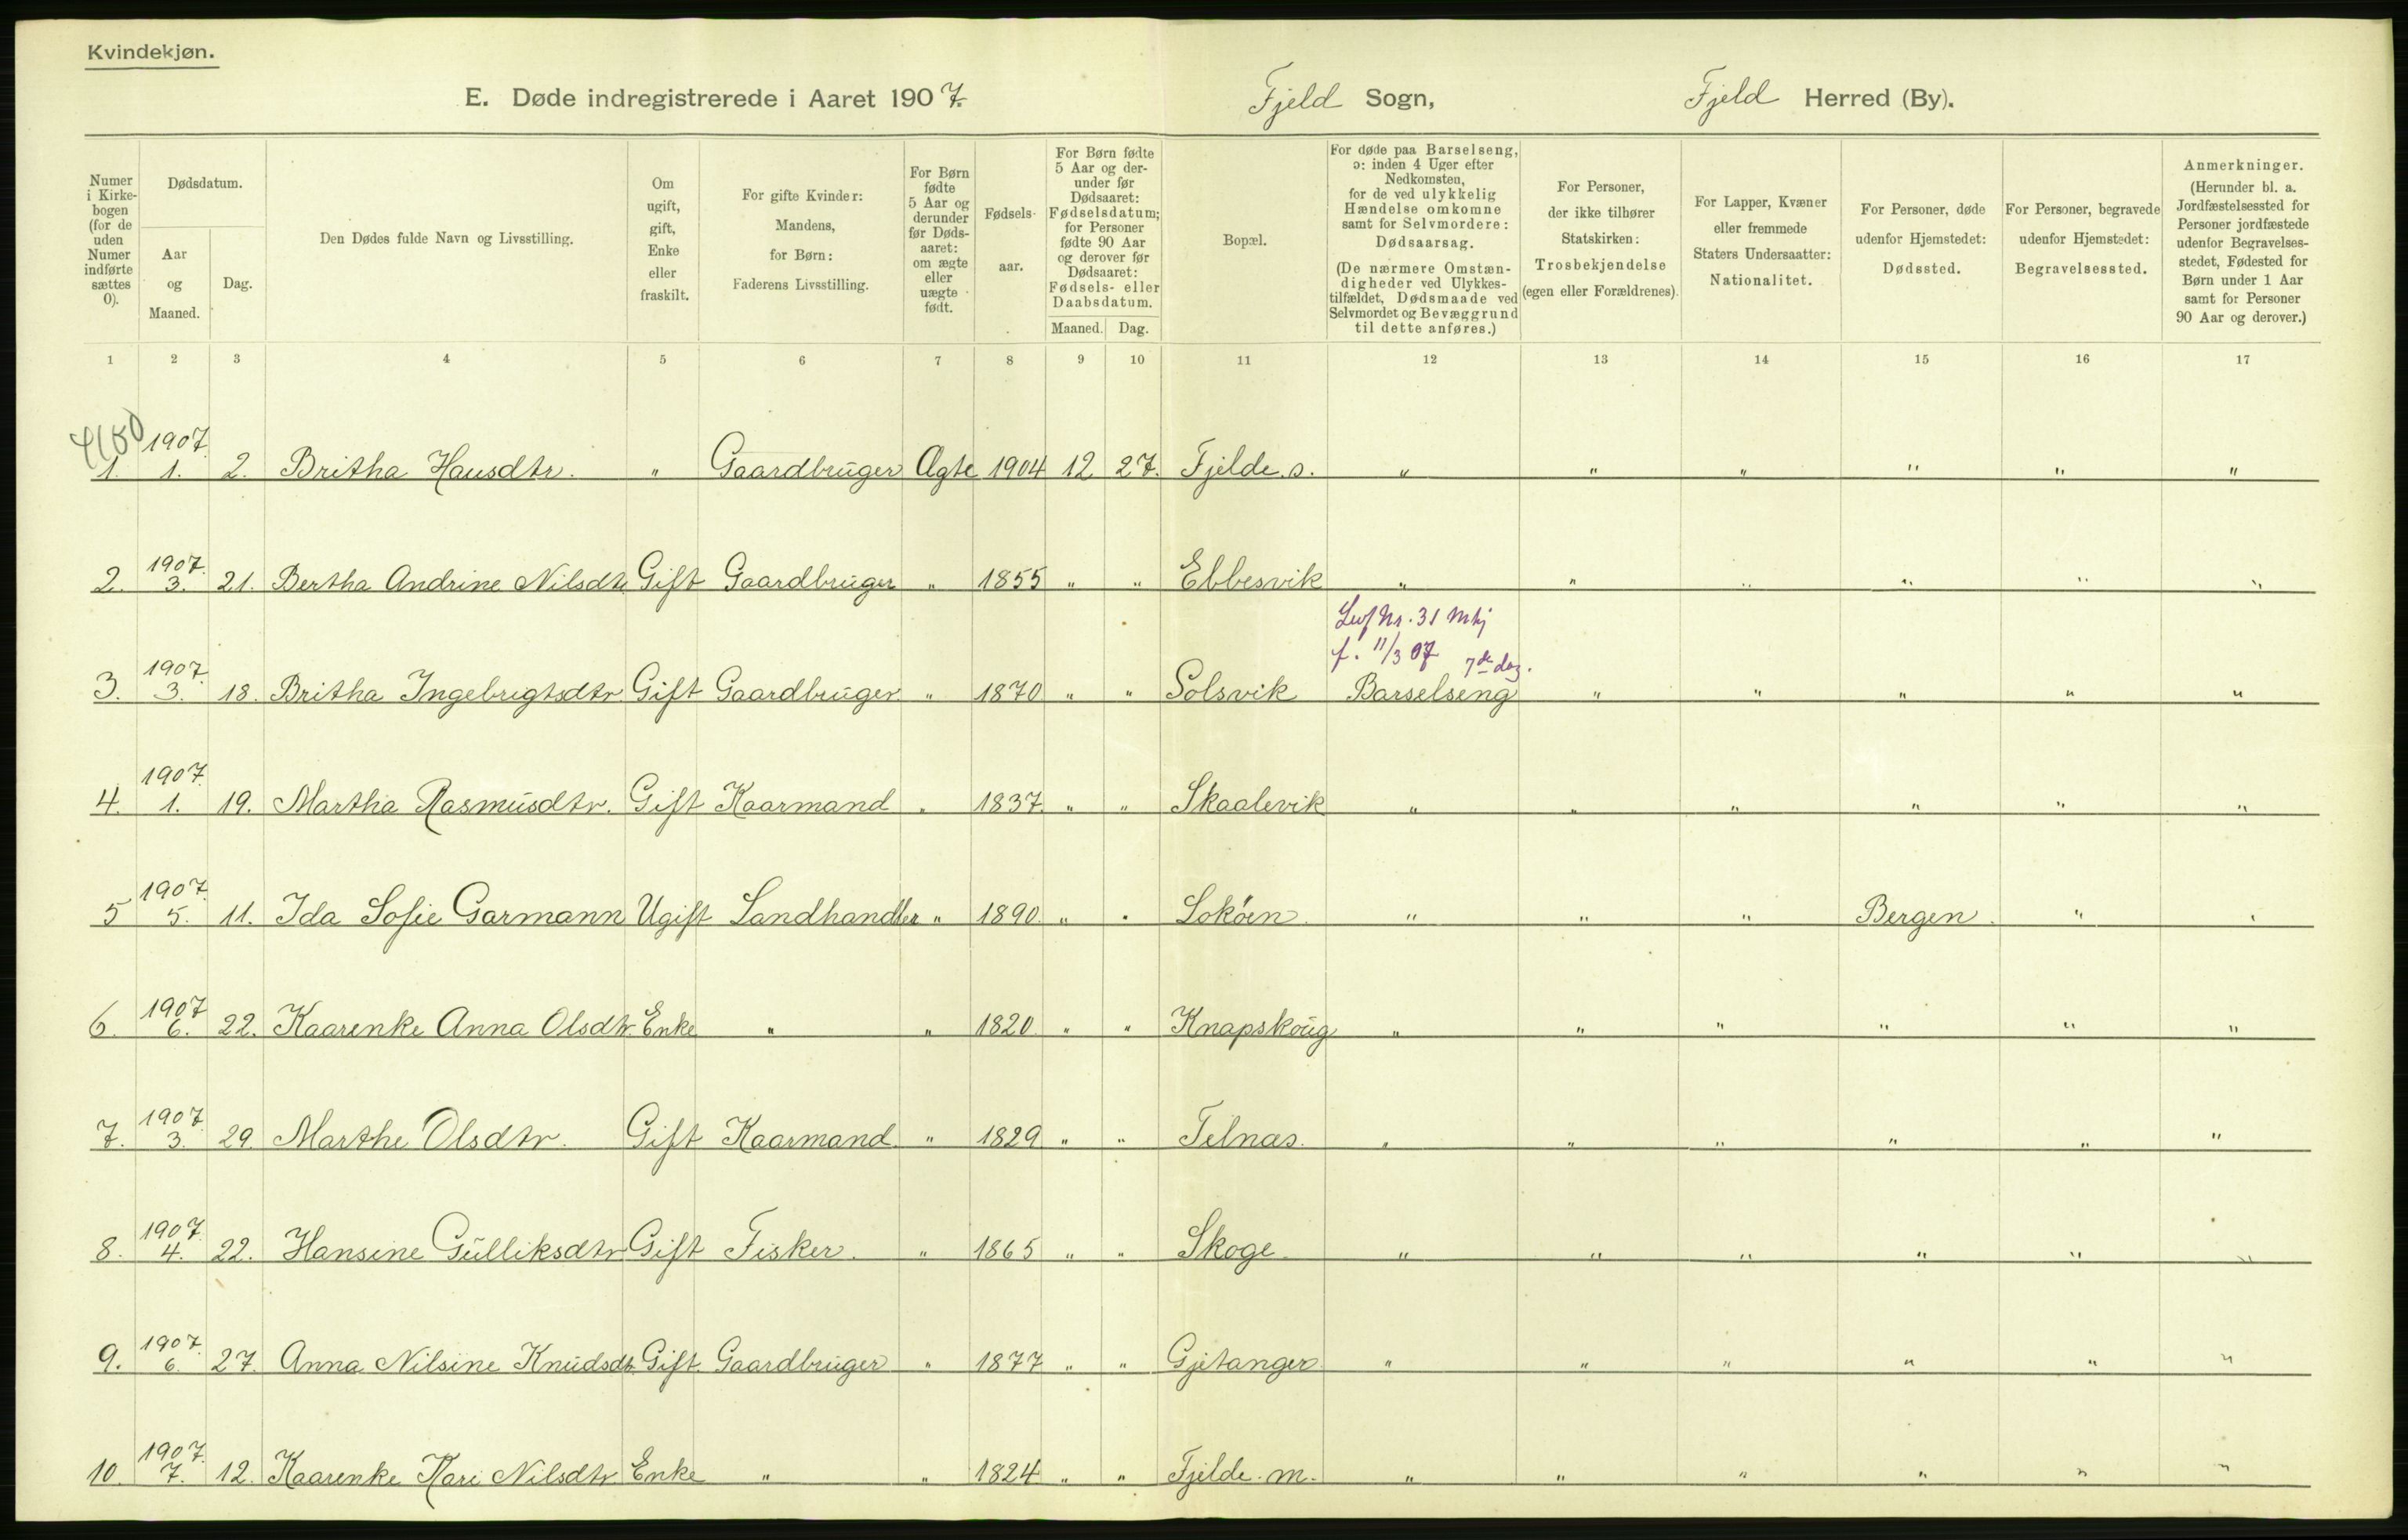 Kvindekjøn.
E. Døde indregistrerede i Aaret 1907. Fjeld Sogn, Fjeld Herred (By).
Numer i Kirkebogen (for de uden Numer indførte sættes 0).
Dødsdatum.
Aar og Maaned.
Dag.
Den Dødes fulde Navn og Livsstilling.
Om ugift, gift, Enke eller fraskilt.
For gifte Kvinder: Mandens, for Børn: Faderens Livsstilling.
For Børn fødte 5 Aar og derunder før Dødsaaret: om ægte eller uægte født.
Fødselsaar.
For Børn fødte 5 Aar og derunder før Dødsaaret: Fødselsdatum; for Personer fødte 90 Aar og derover før Dødsaaret: Fødsels- eller Daabsdatum.
Maaned. Dag.
Bopæl.
For døde paa Barselseng, ɔ: inden 4 Uger efter Nedkomsten, for de ved ulykkelig Hændelse omkomne samt for Selvmordere: Dødsaarsag.
(De nærmere Omstændigheder ved Ulykkestilfældet, Dødsmaade ved Selvmordet og Bevæggrund til dette anføres.)
For Personer, der ikke tilhører Statskirken: Trosbekjendelse (egen eller Forældrenes).
For Lapper, Kvæner eller fremmede Staters Undersaatter: Nationalitet.
For Personer, døde udenfor Hjemstedet: Dødssted.
For Personer, begravede udenfor Hjemstedet: Begravelsessted.
Anmerkninger. (Herunder bl. a. Jordfæstelsessted for Personer jordfæstede udenfor Begravelsesstedet, Fødested for Børn under 1 Aar samt for Personer 90 Aar og derover.)
1 2 3 4 5 6 7 8 9 10 11 12 13 14 15 16 17
1. 1907. 1. 2. Britha Hansdtr. " Gaardbruger Ægte 1904 12 27. Fjelde. s. " " " " " "
2. 1907. 3. 21. Bertha Andrine Nilsdtr Gift Gaardbruger " 1855 " " Ebbesvik " " " " " "
Nr. 31 Mkj
f. 11/3 07 7de dag.
3. 1907. 3. 18. Britha Ingebrigtsdtr Gift Gaardbruger. " 1870 " " Solsvik Barselseng " " " " "
4. 1907. 1. 19. Martha Rasmusdtr. Gift Kaarmand " 1837. " " Skaalevik " " " " " "
5 1907. 5. 11. Ida Sofie Garmann Ugift Landhandler " 1890. " " Lokøen. " " " Bergen. " "
6. 1907 6. 22. Kaarenke Anna Olsdtr. Enke " " 1820. " " Knapskoug " " " " " "
7. 1907. 3. 29. Marthe Olsdtr. Gift Kaarmand. " 1829 " " Telnæs. " " " " " "
8. 1907. 4. 22. Hansine Gulliksdtr Gift Fisker. " 1865 " " Skoge. " " " " " "
9. 1907. 6. 27. Anna Nilsine Knudsdtr. Gift Gaardbruger " 1877 " " Gjetanger " " " " " "
10. 1907. 7. 12. Kaarenke Kari Nilsdtr Enke " " 1824 " " Fjelde. m. " " " " " "